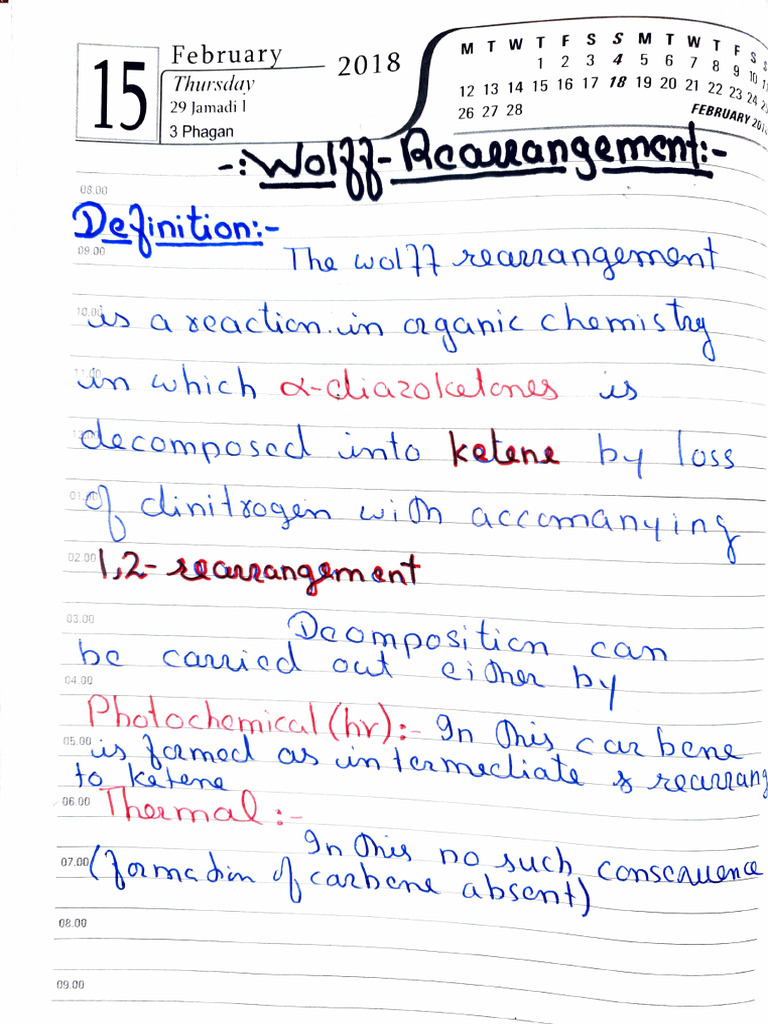 15
February
Thursday
29 Jamadi I
3 Phagan
2018
M T W T F S S M T W T F S S
1 2 3 4 5 6 7 8 9 10 11
12 13 14 15 16 17 18 19 20 21 22 23 24 25
26 27 28
FEBRUARY 2018
-:Wolff-Rearrangement:-
08.00
Definition:-
09.00
The wolff rearrangement
10.00
is a reaction in organic chemistry
11.00
in which α-diazoketones is
decomposed into ketene by loss
01.00
of dinitrogen with accomanying
02.00
1,2- rearrangement
03.00
Dcomposition can
be carried out either by
04.00
Photochemical(hr):- In this carbene
05.00
is formed as intermediate & rearrang
to ketene
06.00
Thermal:-
In this no such conscauence
07.00
(formation of carbene absent)
08.00
09.00